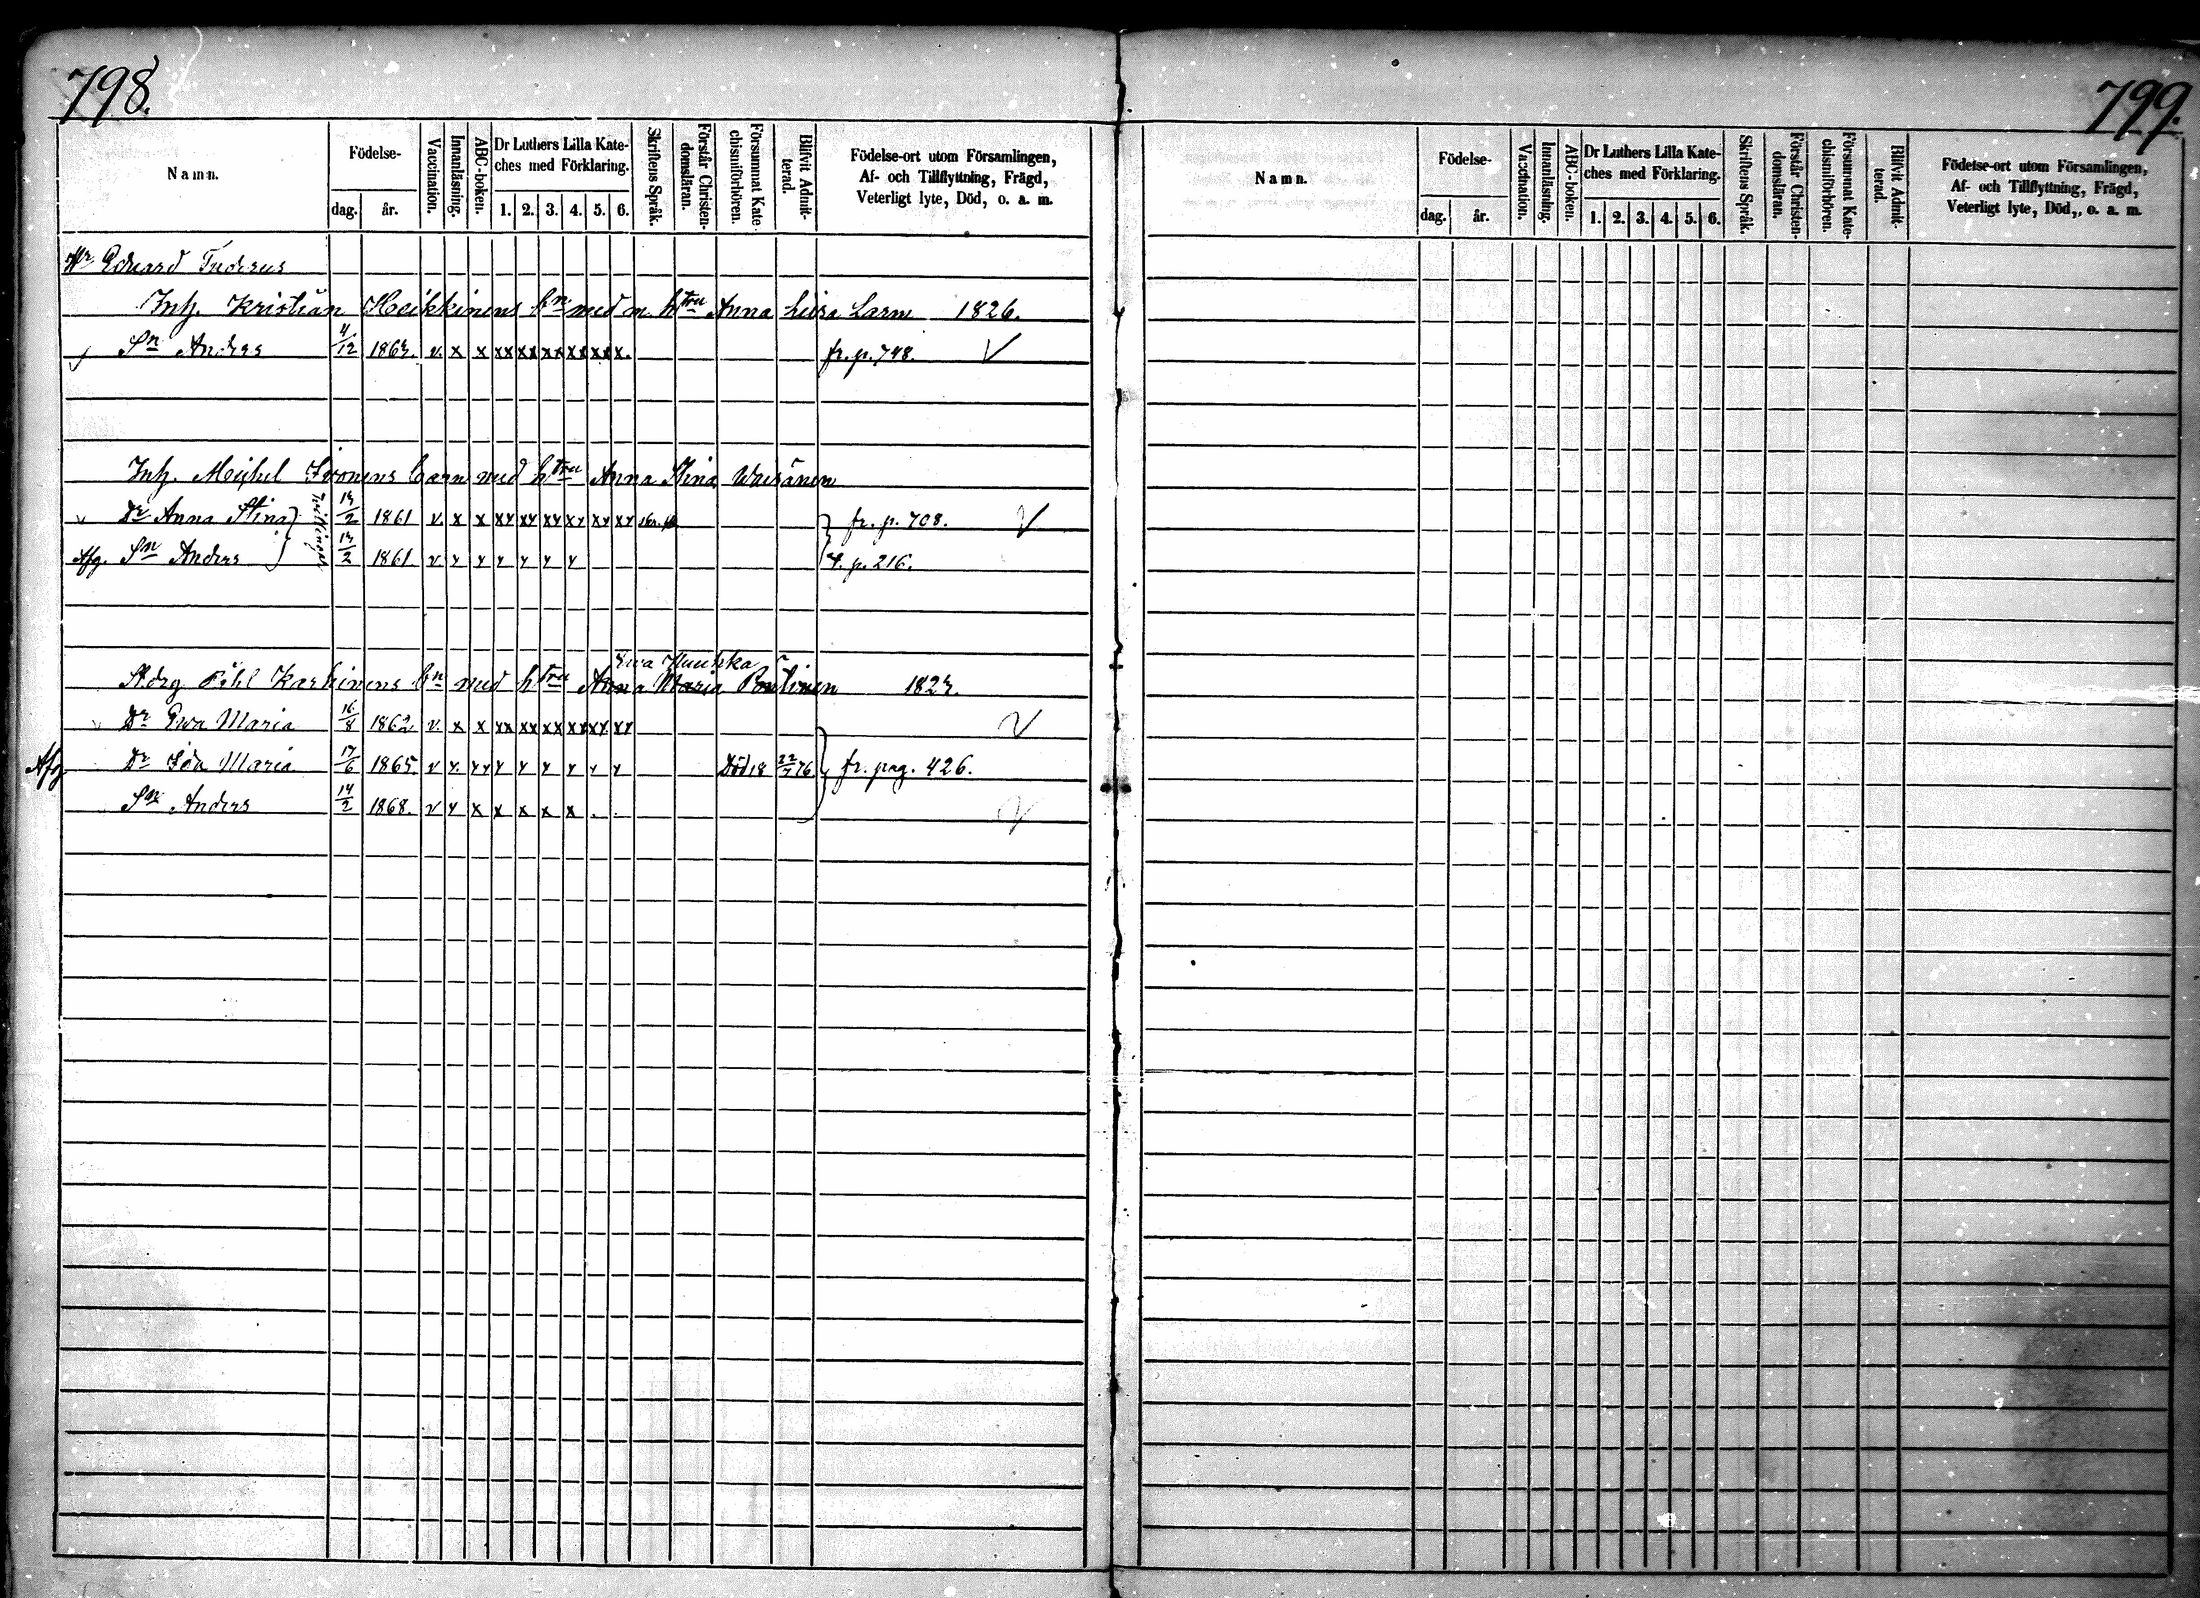 798.
Namn.
Födelse-
dag. år.
Vaccination.
Innanläsning.
ABC-boken.
Dr Luthers Lilla Kate-
ches med Förklaring.
1. 2. 3. 4. 5. 6.
Skriftens Språk.
Förstår Christen-
domsläran.
Försummat Kate-
chismiförhören.
Blifvit Admit-
terad.
Födelse-ort utom Församlingen,
Af- och Tillflyttning, Frägd,
Veterligt lyte, Död, o. a. m.
Hr Eduard
Inh. Kristian Heikkinens bn med m. htru Anna Liisa Larm 1826.
Sn Anders 4/12 186 v. x x xx xx xx xx xx x. fr. p. 748. V
Inh. Mickel barn med htru Anna Stina Waisänen
Dr Anna Stina 13/2 1861 v. x x xy xy xy xy xy xy fr. p. 708. V
Afg. Sn Anders 13/2 1861 v y y y y y y p. 216.
Ewa
Karhinens bn med htru Anna Maria 182
Dr Ewa Maria 16/8 1862 v. x x xx xx xx xx xy xy V
Afg Dr Maria 17/6 1865. v y. yy y y y y y y Död 18 76 fr. pag. 426.
Sn Anders 14/2 1868. v y x x x x x . . V
799.
Namn.
Födelse-
dag. år.
Vaccination.
Innanläsning.
ABC-boken.
Dr Luthers Lilla Kate-
ches med Förklaring.
1. 2. 3. 4. 5. 6.
Skriftens Språk.
Förstår Christen-
domsläran.
Försummat Kate-
chismiförhören.
Blifvit Admit-
terad.
Födelse-ort utom Församlingen,
Af- och Tillflyttning, Frägd,
Veterligt lyte, Död,, o. a. m.